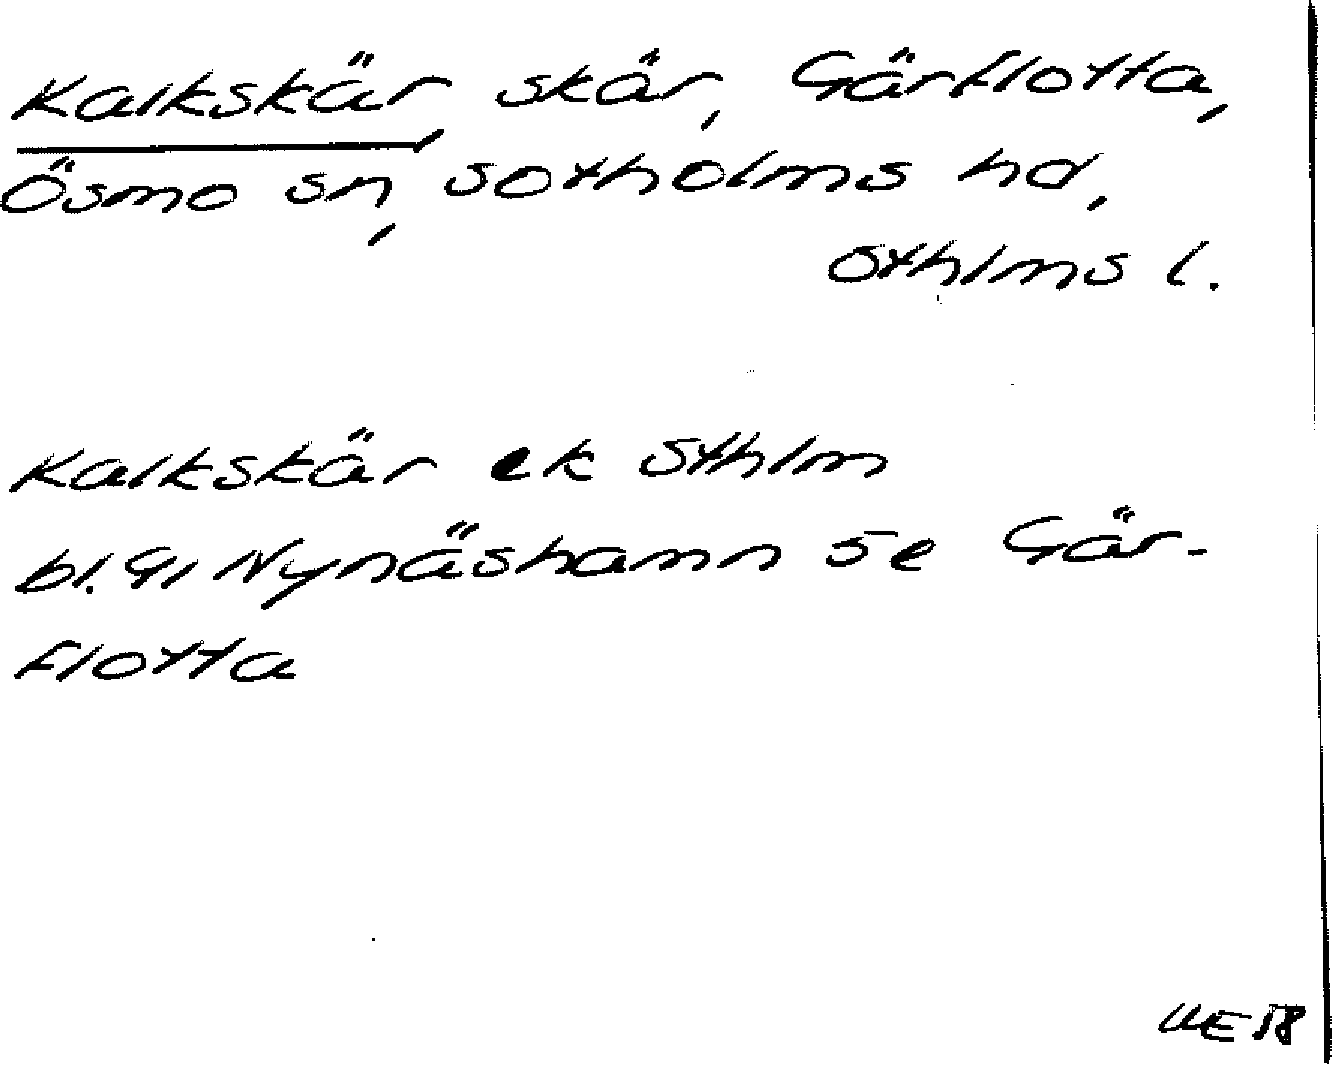 Kalkskär, skär, Gärflotta,
Ösmo sn, Sotholms hd,
Sthlms l.
Kalkskär ek Sthlm
bl. 91 Nynäshamn se Gär-
flotta